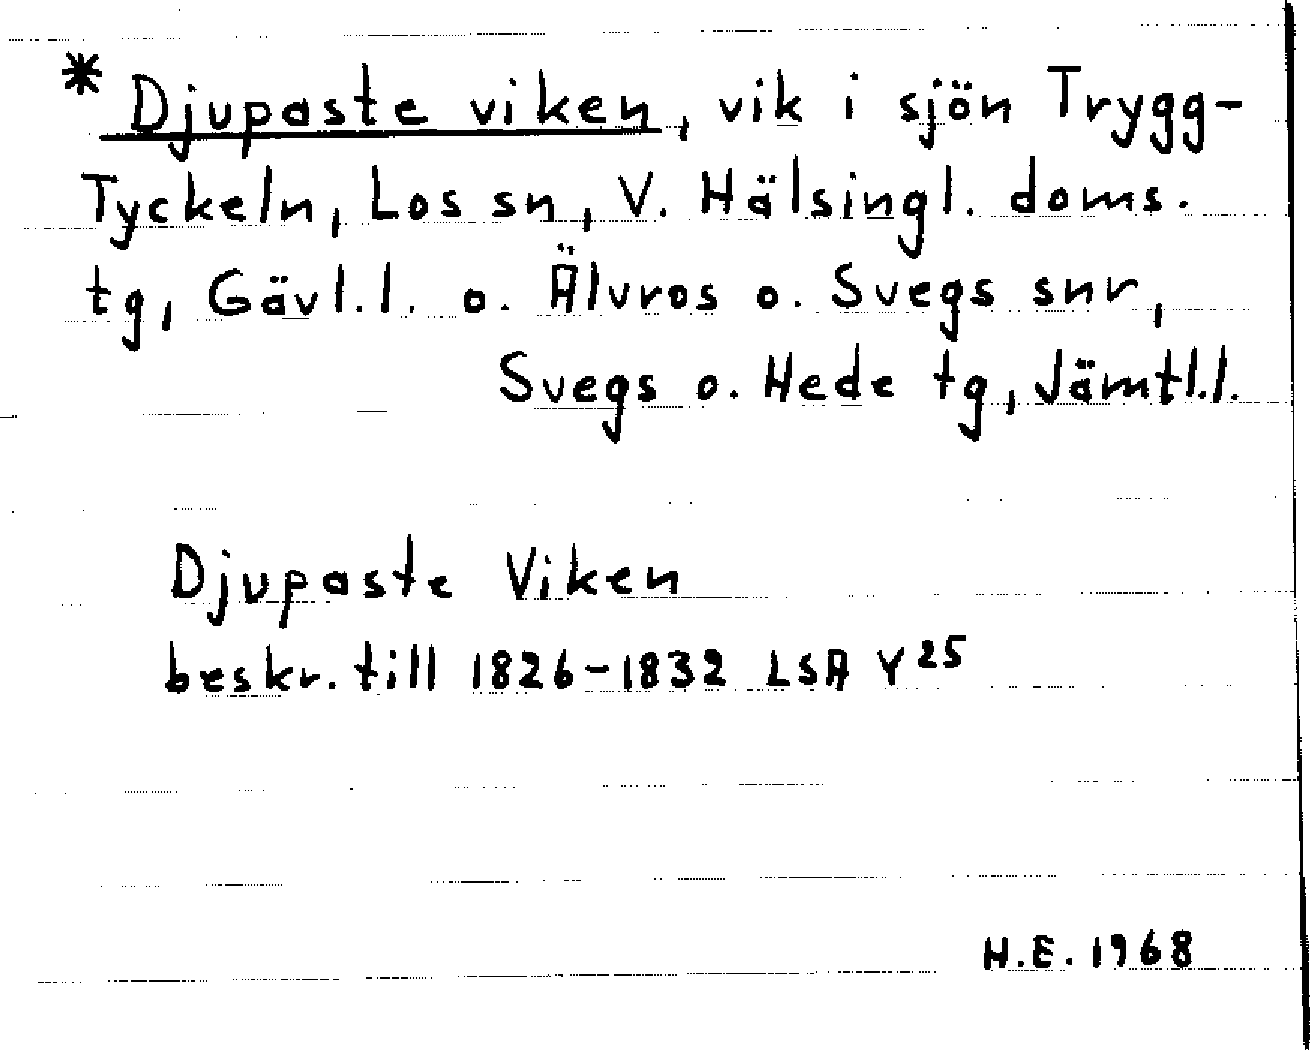 * Djupaste viken, vik i sjön Trygg-
Tyckeln, Los sn, V. Hälsingl. doms.
tg, Gävl.l. o. Älvros o. Svegs snr,
Svegs o. Hede tg, Jämtl.l.
Djupaste Viken
beskr. till 1826-1832 LSA Y25
H.E. 1968